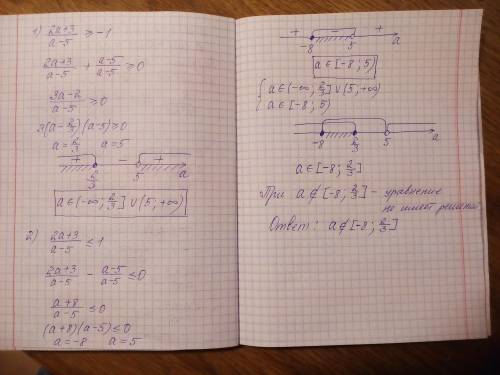 1) (2a+3)/(a-5) ≥ -1
(2a+3)/(a-5) + (a-5)/(a-5) ≥ 0
(3a-2)/(a-5) ≥ 0
3(a-2/3)(a-5) ≥ 0
a = 2/3 a = 5
+ - +
2/3 5 a
a∈(-∞; 2/3] ∪ (5; +∞)
2) (2a+3)/(a-5) ≤ 1
(2a+3)/(a-5) - (a-5)/(a-5) ≤ 0
(a+8)/(a-5) ≤ 0
(a+8)(a-5) ≤ 0
a = -8 a = 5
+ - +
-8 5 a
a∈[-8; 5)
{ a∈(-∞; 2/3] ∪ (5; +∞)
a∈[-8; 5)
-8 2/3 5 a
a∈[-8; 2/3]
При a∉[-8; 2/3] - уравнение
не имеет решений
Ответ: a∉[-8; 2/3]